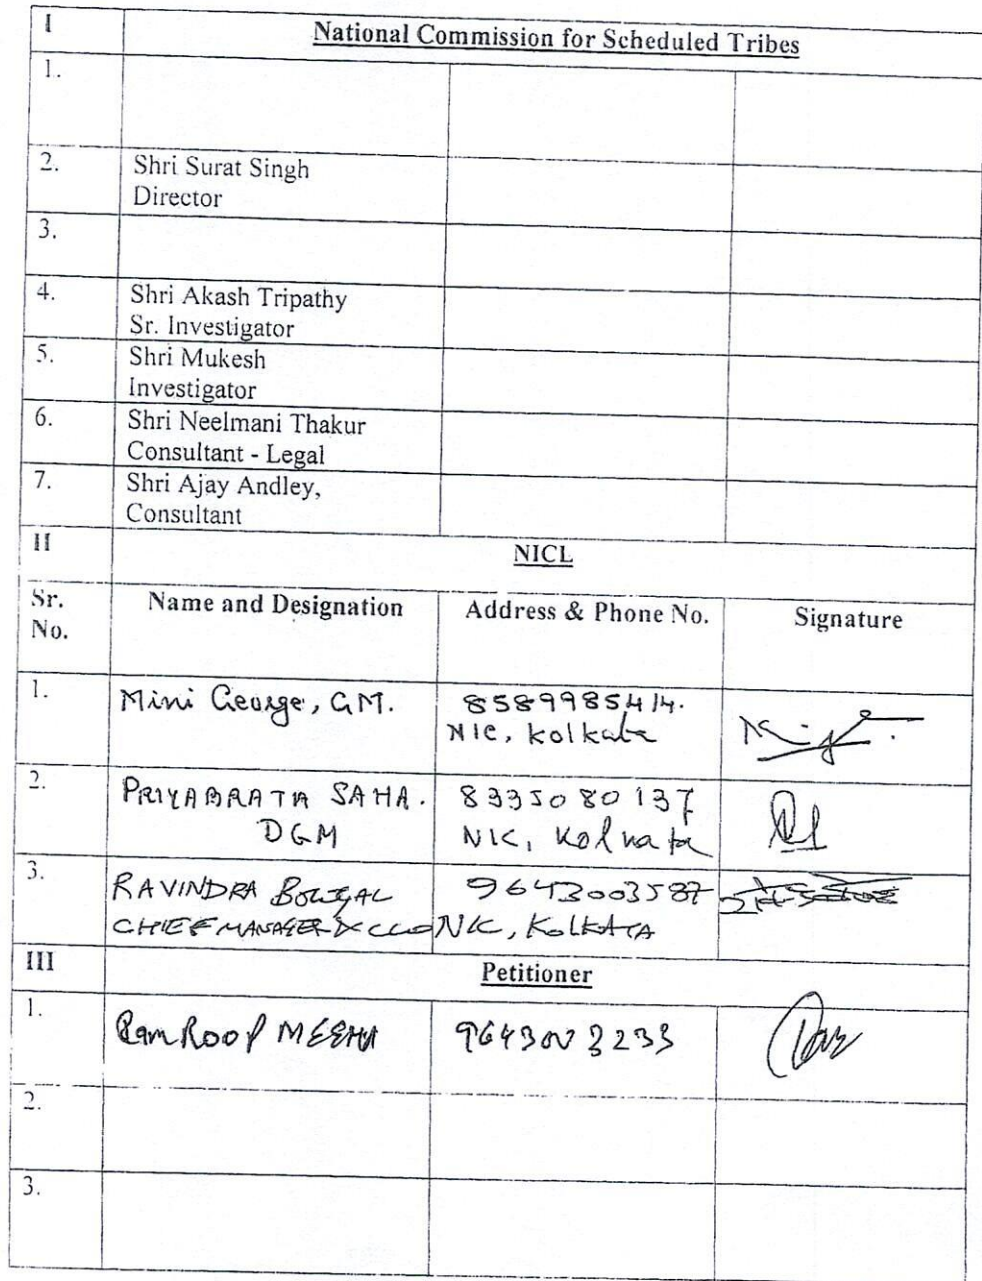 I National Commission for Scheduled Tribes
1.
2. Shri Surat Singh
Director
3.
4. Shri Akash Tripathy
Sr. Investigator
5. Shri Mukesh
Investigator
6. Shri Neelmani Thakur
Consultant - Legal
7. Shri Ajay Andley,
Consultant
II NICL
Sr. Name and Designation Address & Phone No. Signature
No.
1. Mini George, GM. 8589985414.
NIC, Kolkata
2. PRIYABRATA SAHA. 8335080137
DGM NIC, Kolkata
3. RAVINDRA 9643003587
CHIEF MANAGER & CLO NIC, KOLKATA
III Petitioner
1. RamRoop MEENA
2.
3.